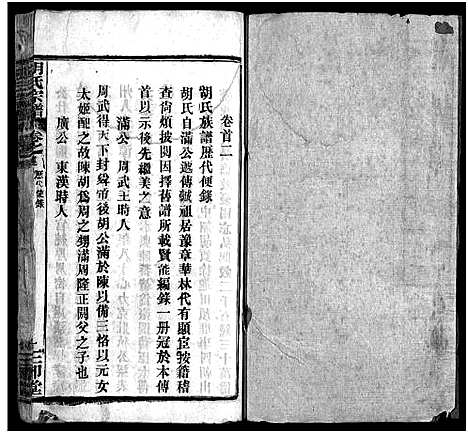 卷首二
胡氏族譜歷代便錄
胡氏自滿公遞傳毓祖居豫章華林代有顯宦按籍稽
查尚煩披閱因擇舊譜所載賢能編錄一册冠於本傳
首以示後先繼美之意
滿公 周武王時人
周武得天下封舜帝後胡公滿於陳以備三恪以元女
太姬配之故陳胡爲周之甥滿周陸正閼父之子也
廣公 東漢時人
胡氏宗譜 卷